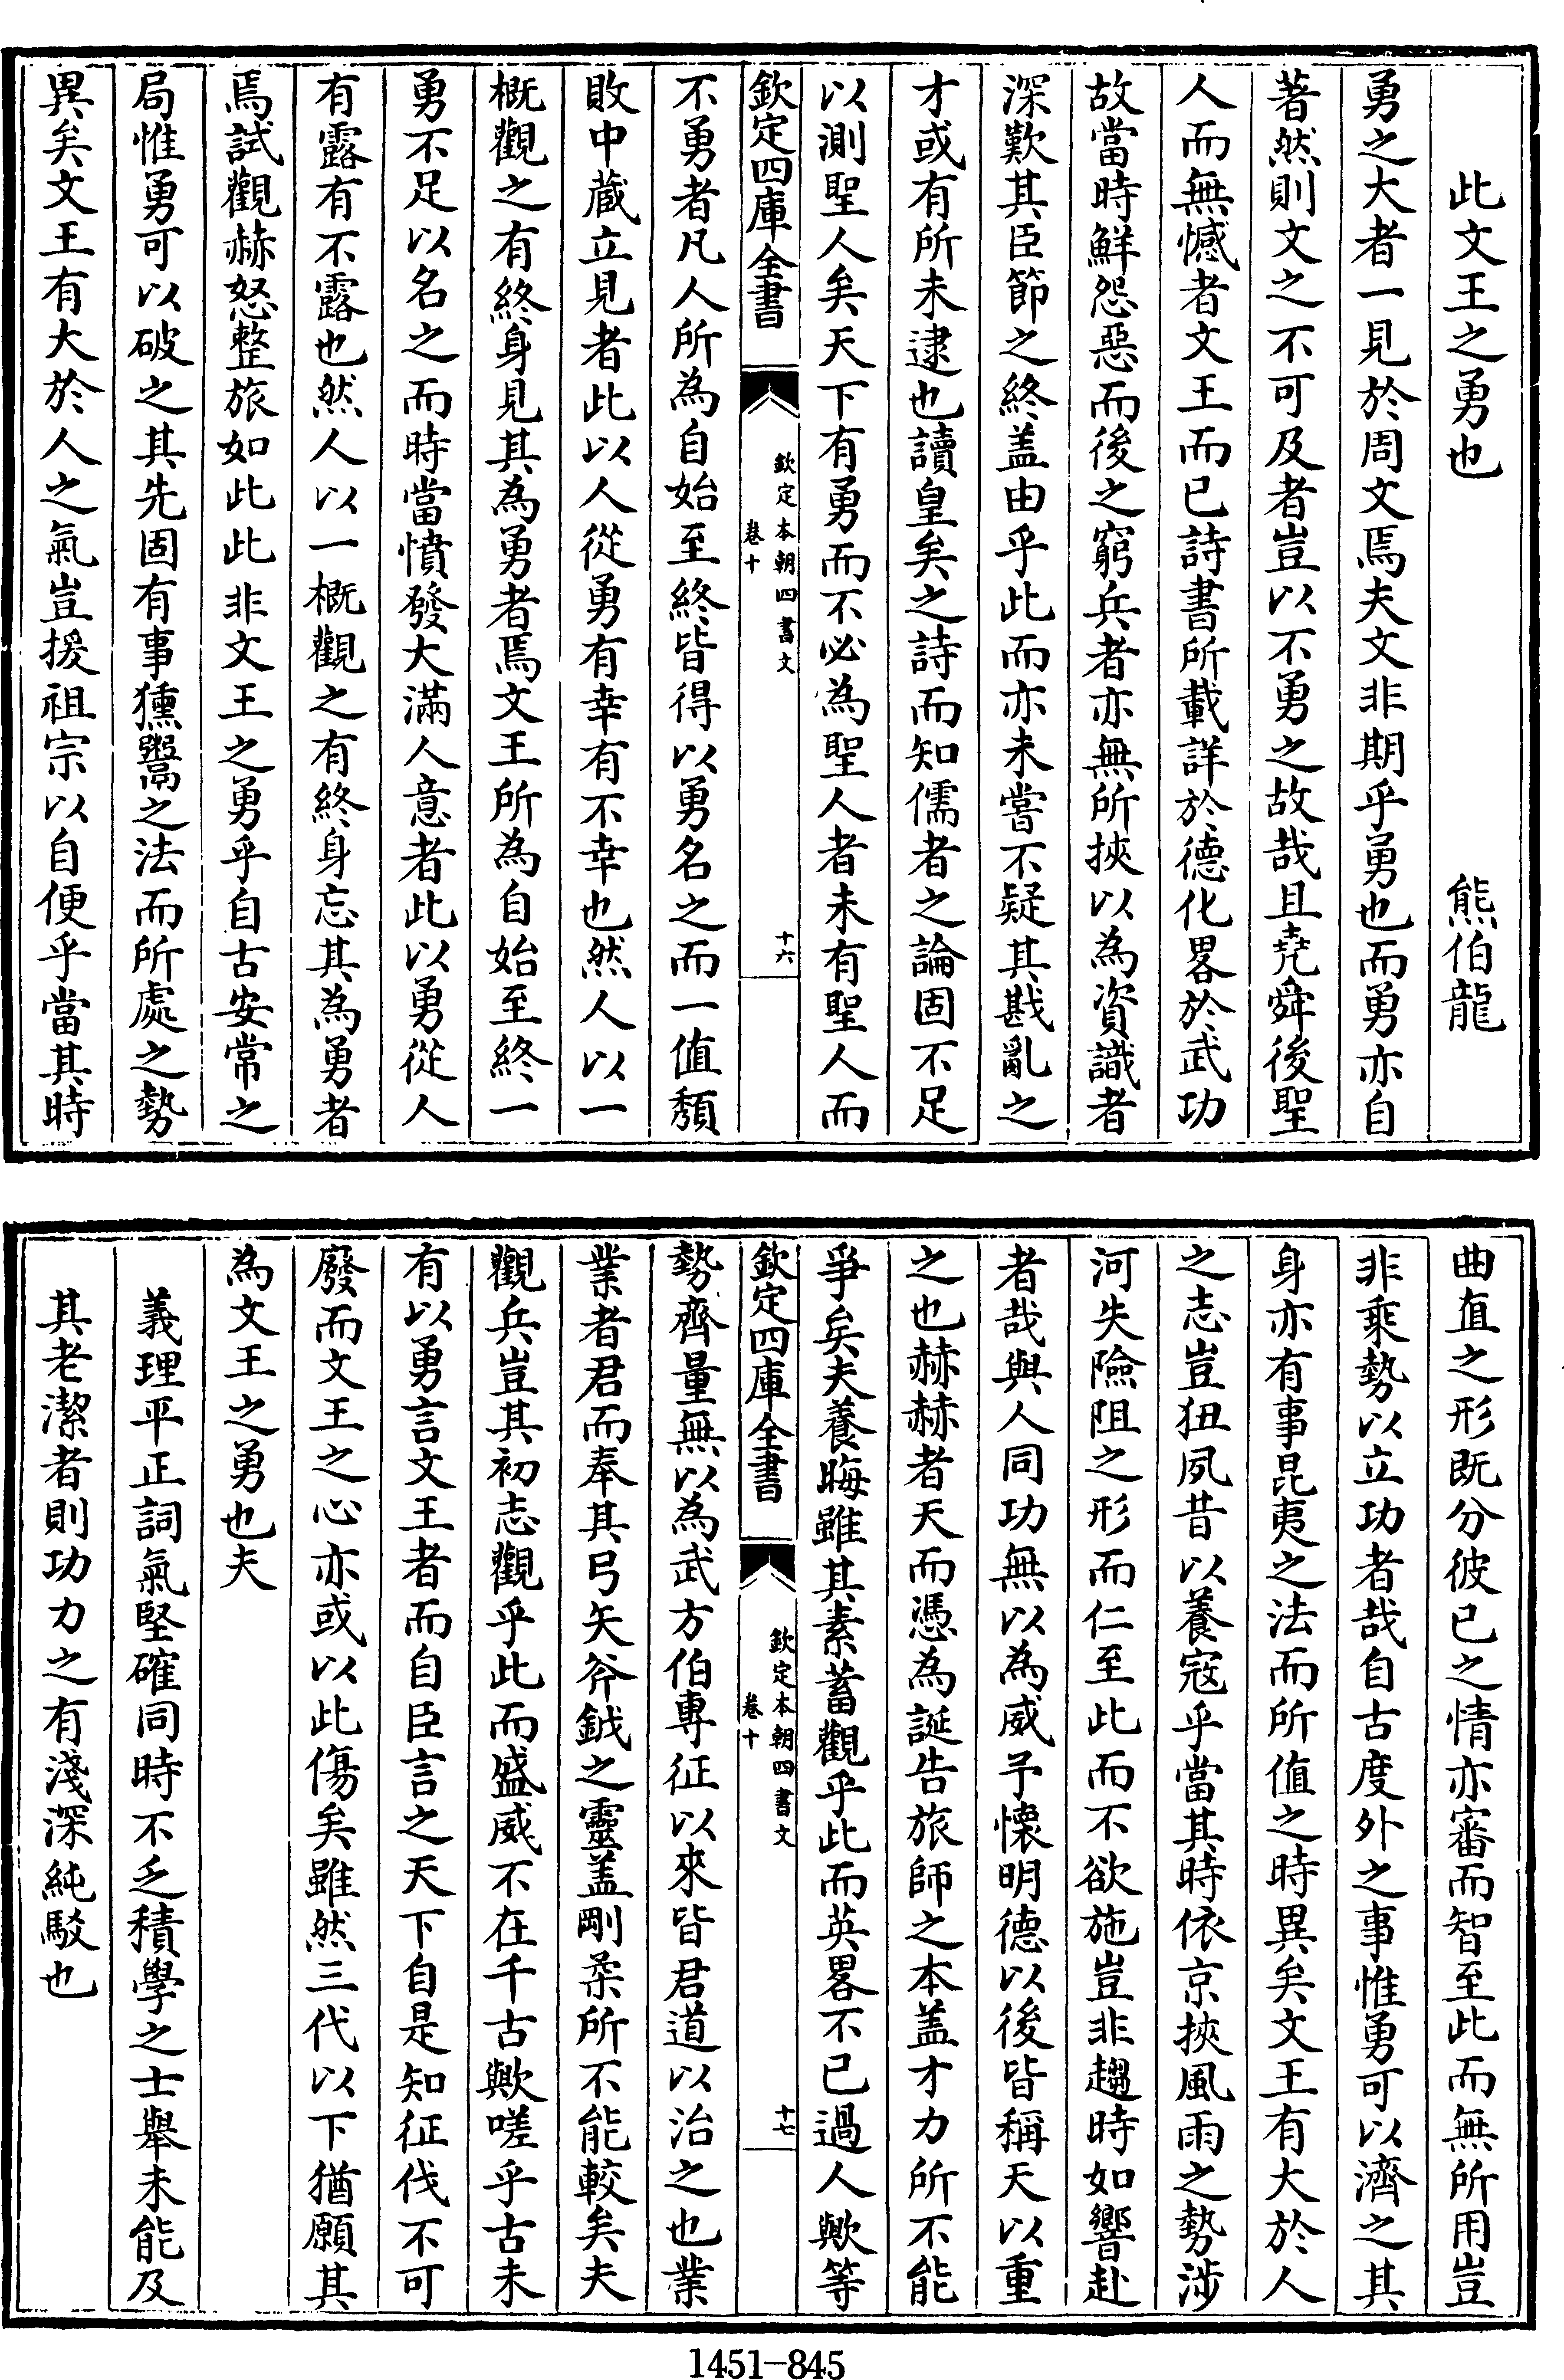 此文王之勇也　熊伯龍
勇之大者一見於周文焉夫文非期乎勇也而勇亦自
著然則文之不可及者豈以不勇之故哉且堯舜後聖
人而無憾者文王而已詩書所載詳於德化畧於武功
故當時鮮怨惡而後之窮兵者亦無所挾以為資識者
深歎其臣節之終盖由乎此而亦未嘗不疑其戡亂之
才或有所未逮也讀皇矣之詩而知儒者之論固不足
以測聖人矣天下有勇而不必為聖人者未有聖人而
欽定四庫全書
欽定本朝四書文
卷十
十六
不勇者凡人所為自始至終皆得以勇名之而一值頽
敗中蔵立見者此以人從勇有幸有不幸也然人以一
概觀之有終身見其為勇者焉文王所為自始至終一
勇不足以名之而時當憤發大滿人意者此以勇從人
有露有不露也然人以一概觀之有終身忘其為勇者
焉試觀赫怒整旅如此此非文王之勇乎自古安常之
局惟勇可以破之其先固有事獯鬻之法而所處之勢
異矣文王有大於人之氣豈援祖宗以自便乎當其時
曲直之形既分彼已之情亦審而智至此而無所用豈
非乘勢以立功者哉自古度外之事惟勇可以濟之其
身亦有事昆夷之法而所值之時異矣文王有大於人
之志豈狃夙昔以養寇乎當其時依京挾風雨之勢涉
河失險阻之形而仁至此而不欲施豈非趨時如響赴
者哉與人同功無以為威予懷明德以後皆稱天以重
之也赫赫者天而憑為誕告旅師之本盖才力所不能
爭矣夫養晦雖其素蓄觀乎此而英畧不已過人歟等
欽定四庫全書
欽定本朝四書文
卷十
十七
勢齊量無以為武方伯專征以來皆君道以治之也業
業者君而奉其弓矢斧鉞之靈盖剛柔所不能較矣夫
觀兵豈其初志觀乎此而盛威不在千古歟嗟乎古未
有以勇言文王者而自臣言之天下自是知征伐不可
廢而文王之心亦或以此傷矣雖然三代以下猶願其
為文王之勇也夫
義理平正詞氣堅確同時不乏積學之士舉未能及
其老潔者則功力之有淺深純駁也
1451-845